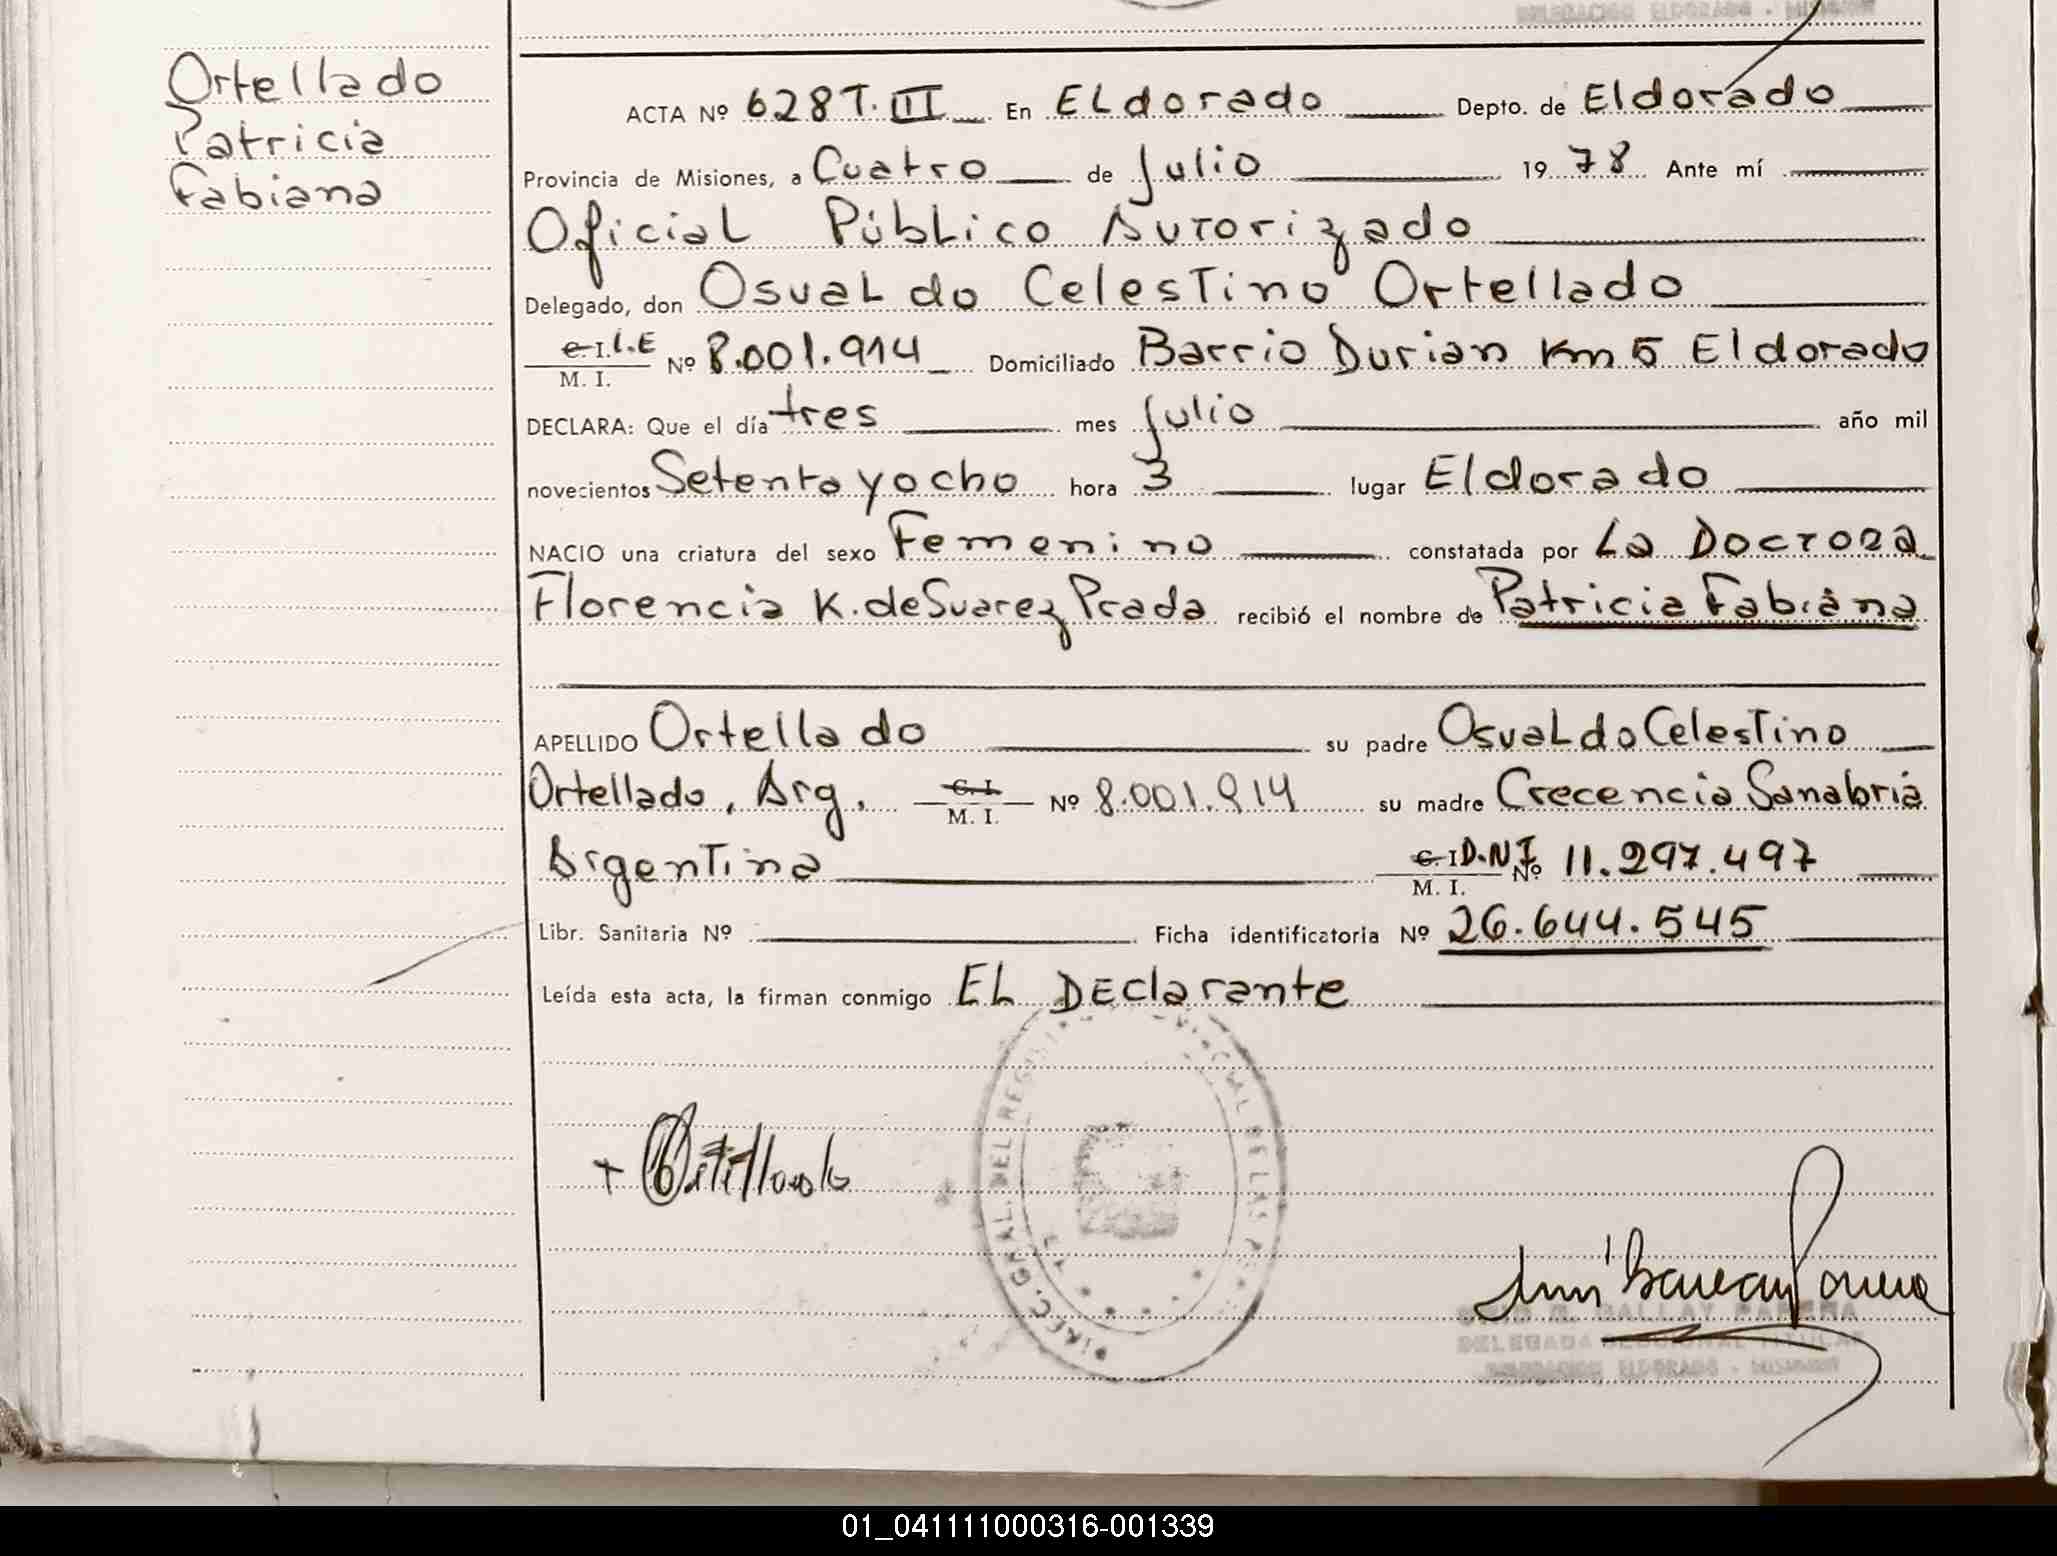 DELEGACION ELDORADO - MISIONES
Ortellado
Patricia
Fabiana
ACTA Nº 628 T. III En ELdorado Depto. de Eldorado
Provincia de Misiones, a Cuatro de Julio 1978 Ante mí
Oficial Público Autorizado
Delegado, don Osvaldo Celestino Ortellado
C. I. L.E Nº 8.001.914 Domiciliado Barrio Durian Km 5 Eldorado
M. I.
DECLARA: Que el día tres mes Julio año mil
novecientos Setenta y ocho hora 3 lugar Eldorado
NACIO una criatura del sexo Femenino constatada por La Doctora
Florencia K. de Suarez Prada recibió el nombre de Patricia Fabiana
APELLIDO Ortellado su padre Osvaldo Celestino
Ortellado, Arg. C. I. Nº 8.001.914 su madre Crecencia Sanabria
M. I.
Argentina C. I D.N.I. Nº 11.297.497
M. I.
Libr. Sanitaria Nº Ficha identificatoria Nº 26.644.545
Leída esta acta, la firman conmigo EL DEclarante
DIREC. GRAL. DEL REGIST
+ Ortellado
DELEGADA SECCIONAL TITULAR
DELEGACION ELDORADO - MISIONES
01_041111000316-001339